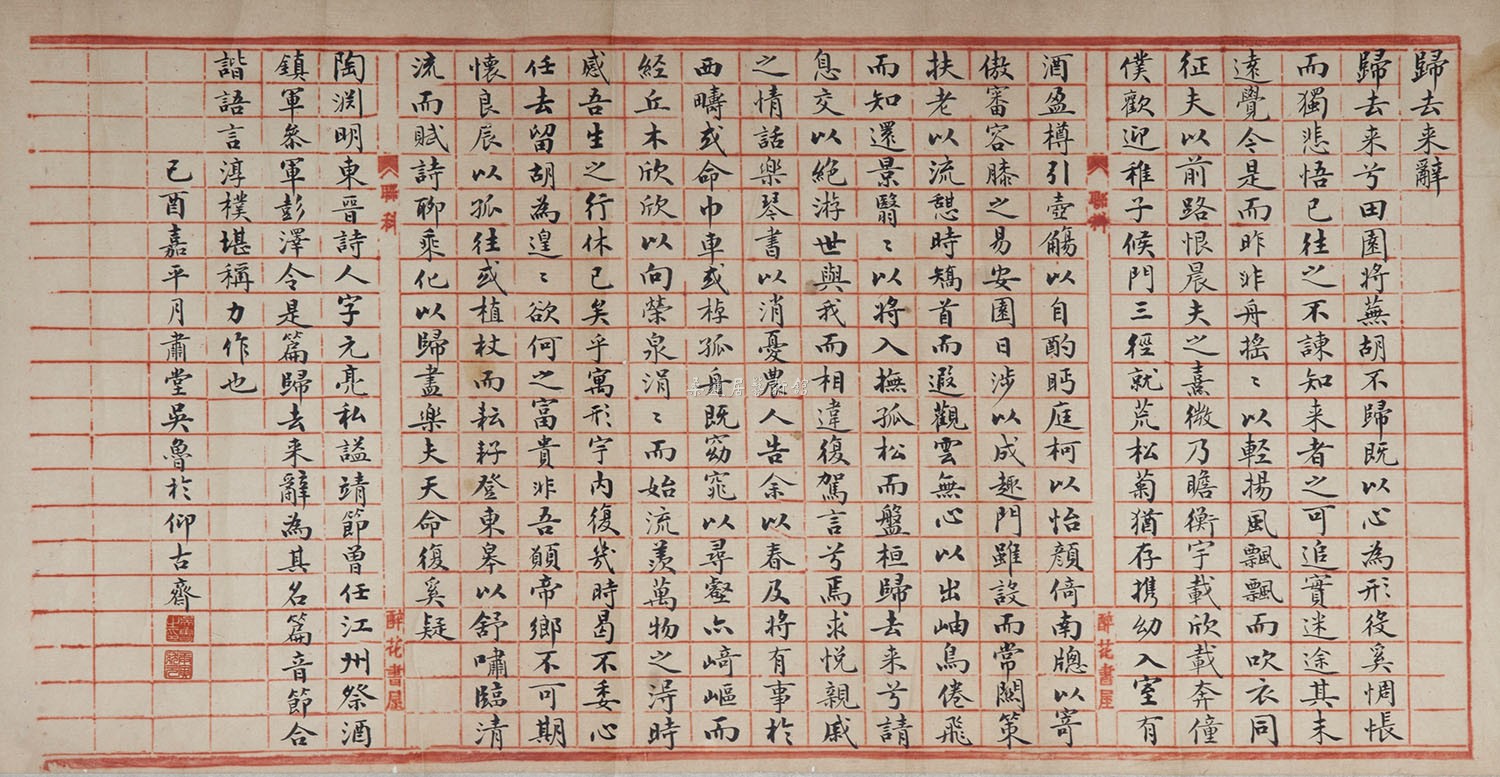 歸去来辭
歸去来兮田園将蕪胡不歸既以心為形役奚惆悵
而獨悲悟已往之不諫知来者之可追實迷途其未
遠覺令是而昨非舟搖〻以輕揚風飄飄而吹衣同
征夫以前路恨晨夫之熹微乃瞻衡宇載欣載奔僮
僕歡迎稚子候門三徑就荒松菊猶存携幼入室有
聯科
醉花書屋
酒盈樽引壺觴以自酌眄庭柯以怡顏倚南牕以寄
傲審容膝之易安園日涉以成趣門雖設而常關策
扶老以流憩時矯首而遐觀雲無心以出岫鳥倦飛
而知還景翳〻以将入撫孤松而盤桓歸去来兮請
息交以絕游世與我而相違復駕言兮焉求悅親戚
之情話樂琴書以消憂農人告余以春及将有事於
西疇或命巾車或棹孤舟既窈窕以尋壑亦崎嶇而
経丘木欣欣以向榮泉涓〻而始流羨萬物之淂時
感吾生之行休已矣乎寓形宇内復幾時曷不委心
任去留胡為遑〻欲何之富貴非吾願帝鄉不可期
懷良辰以孤往或植杖而耘耔登東皋以舒嘯臨清
流而賦詩聊乘化以歸盡樂夫天命復奚疑
聯科
醉花書屋
陶淵明東晉詩人字元亮私謚靖節曾任江州祭酒
鎮軍叅軍彭澤令是篇歸去来辭為其名篇音節合
諧語言淳樸堪稱力作也
己酉嘉平月肅堂吳魯於仰古齋